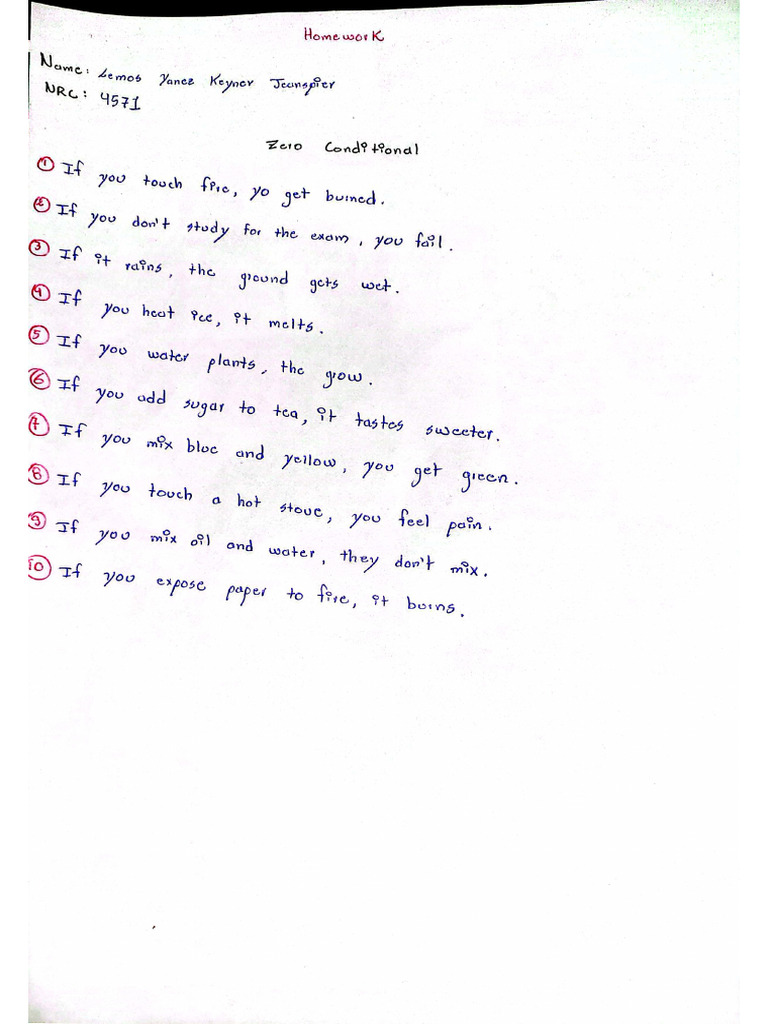 Homework
Name: Lemos Yanez Keyner Jeanspier
NRC: 4571
Zero Conditional
① If you touch fire, yo get burned.
② If you don't study for the exam, you fail.
③ If it rains, the ground gets wet.
④ If you heat ice, it melts.
⑤ If you water plants, the grow.
⑥ If you add sugar to tea, it tastes sweeter.
⑦ If you mix blue and yellow, you get green.
⑧ If you touch a hot stove, you feel pain.
⑨ If you mix oil and water, they don't mix.
⑩ If you expose paper to fire, it burns.